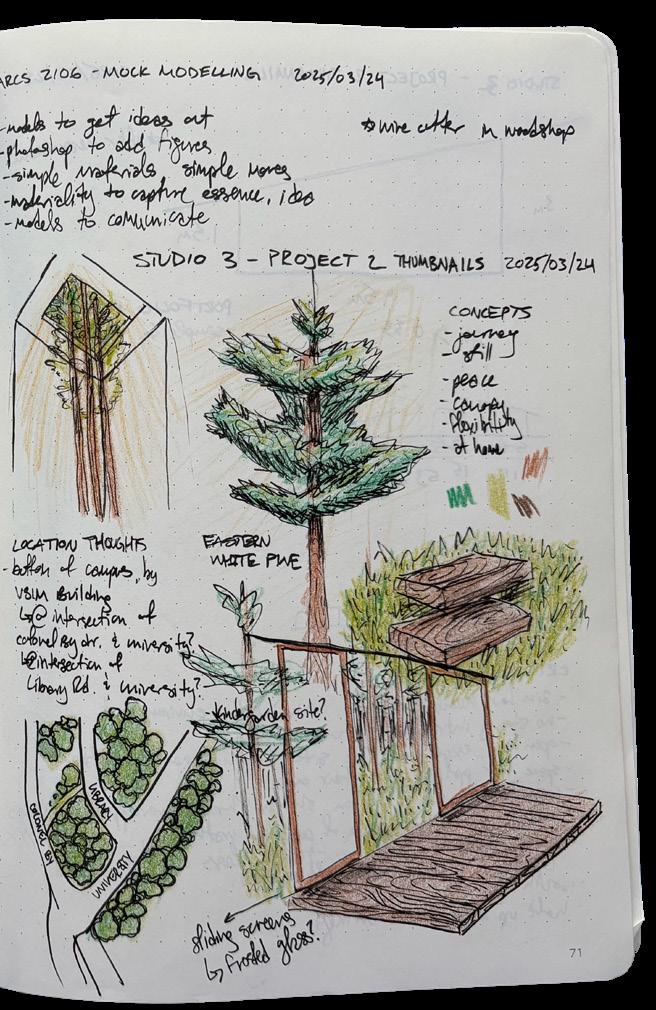 ARCS 2106 - MOCK MODELLING 2025/03/24
- models to get ideas out
- photoshop to add figures
- simple materials simple moves
- materiality to capture essence, idea
- models to comunicate
wire cutter in woodshop
STUDIO 3 - PROJECT 2 THUMBNAILS 2025/03/24
CONCEPTS
- journey
- still
- peace
- canopy
- flexibility
- at home
EASTERN
WHITE PINE
LOCATION THOUGHTS
- bottom of campus, by
VSIM Building
↳@ intersection of
colonel By dr. & university?
↳@ intersection of
Library Rd. & university?
kindergarden site?
COLONEL BY
LIBRARY
UNIVERSITY
sliding screens
↳ frosted glass?
71